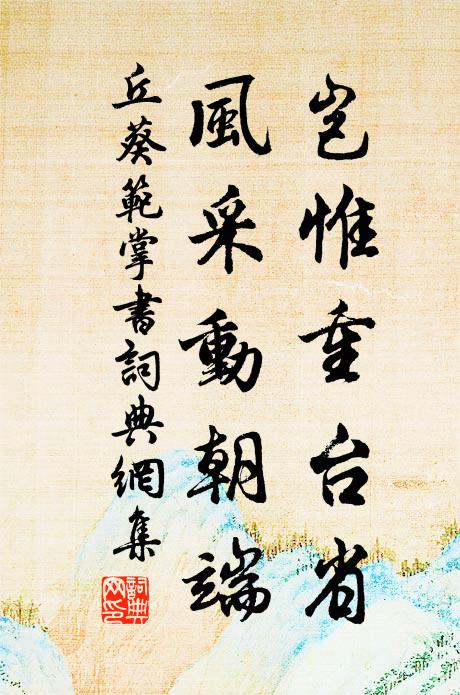 豈惟重台省
風采動朝端
丘葵範掌書詞典網集
詞典網印